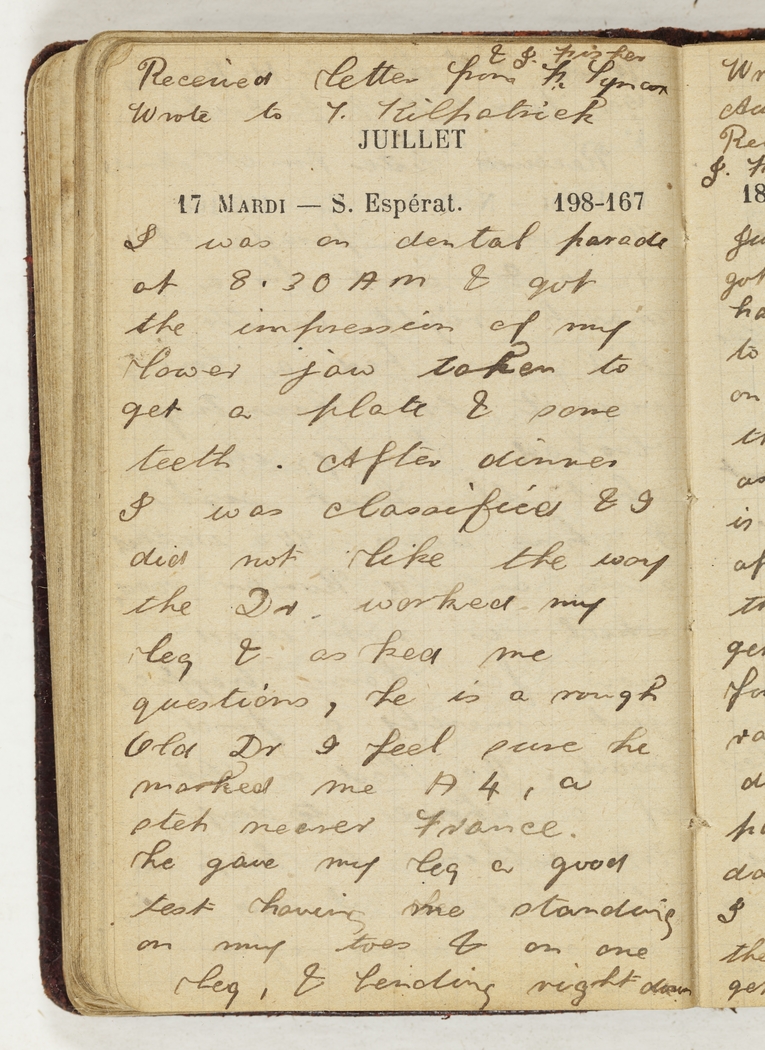 & J. Fisher
Received letter from
Wrote to T. Kilpatrick
JUILLET
17 MARDI — S. Espérat. 198-167
I was on dental parade
at 8.30 AM & got
the impression of my
lower jaw taken to
get a plate & some
teeth. After dinner
I was classified & I
did not like the way
the Dr. worked my
leg & asked me
questions, he is a rough
Old Dr I feel sure he
marked me A4, a
step nearer France.
he gave my leg a good
test having me standing
on my toes & on one
leg, & bending right down
Wr
Rec
J.
18
got
ha
to
on
th
as
is
of
th
ge
for
ra
d
pa
da
I
the
get